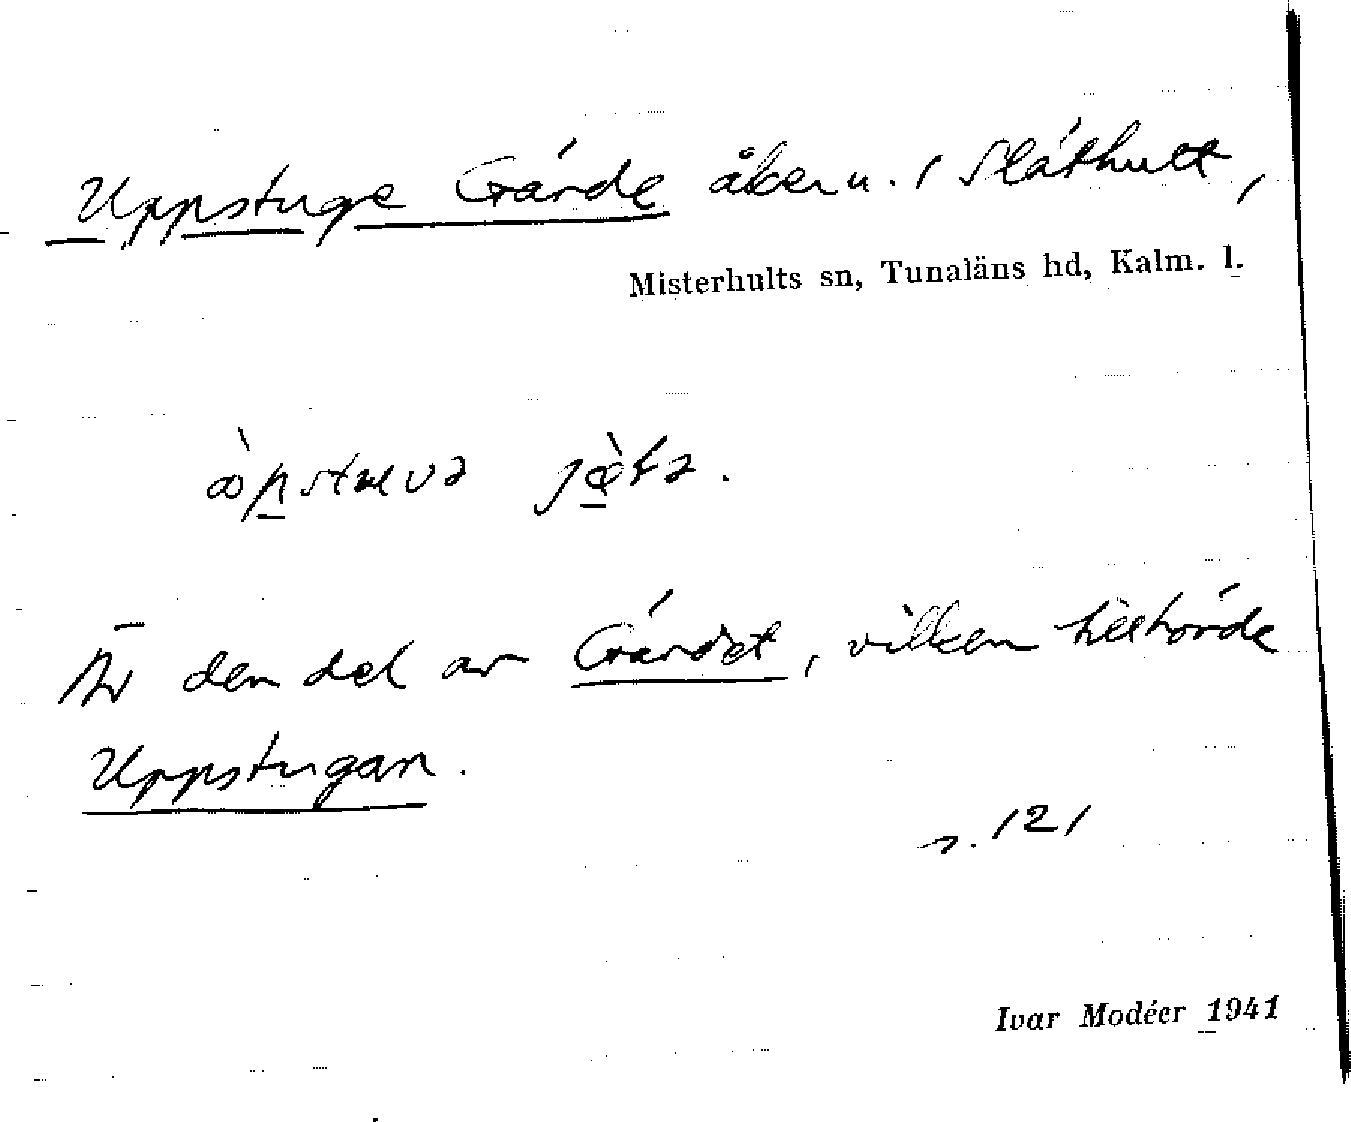 Uppstuge Gärde åkern. i Slåthult,
Misterhults sn, Tunaläns hd, Kalm. l.
Är den del av Gärdet, vilken tillhörde
Uppstugan.
s. 121
Ivar Modéer 1941